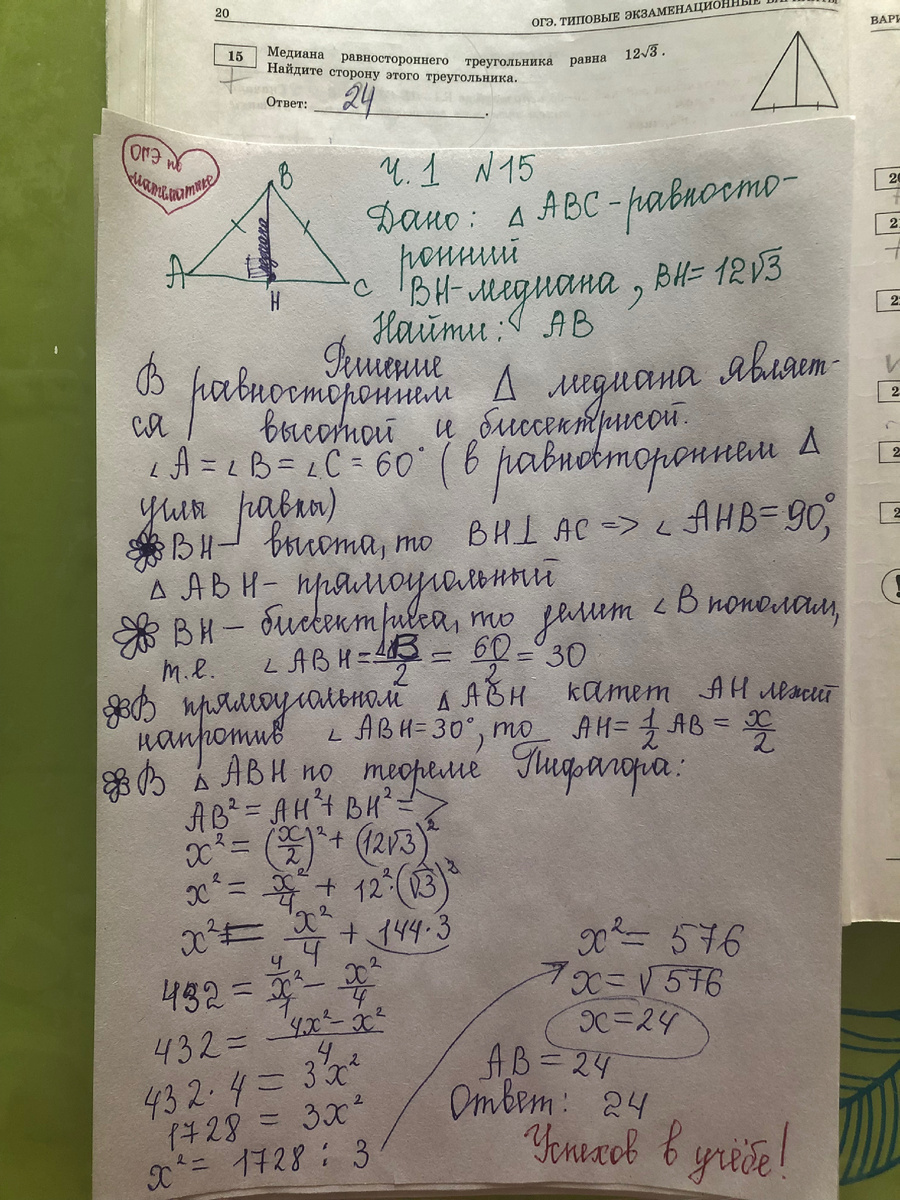 20
ОГЭ. ТИПОВЫЕ ЭКЗАМЕНАЦИОННЫЕ ВАРИАНТЫ
ВАРИ
15 Медиана равностороннего треугольника равна 12√3.
Найдите сторону этого треугольника.
Ответ: 24.
ОГЭ по
математике
Ч.1 N15
B
A
H
C
медиана
Дано: △ ABC - равносто-
ронний
BH - медиана, BH = 12√3
Найти: AB
Решение
В равностороннем △ медиана являет-
ся высотой и биссектрисой.
∠A = ∠B = ∠C = 60° (в равностороннем △
углы равны)
BH – высота, то BH ⊥ AC => ∠AHB = 90°,
△ ABH – прямоугольный
BH – биссектриса, то делит ∠B пополам,
т.е. ∠ABH = ∠B/2 = 60/2 = 30
В прямоугольном △ABH катет AH лежит
напротив ∠ABH = 30°, то AH = 1/2 AB = x/2
В △ABH по теореме Пифагора:
AB² = AH² + BH² =>
x² = (x/2)² + (12√3)²
x² = x²/4 + 12²·(√3)²
x² = x²/4 + 144·3
432 = 4 x²/1 - x²/4
432 = 4x² - x²/4
432·4 = 3x²
1728 = 3x²
x² = 1728 : 3
x² = 576
x = √576
x = 24
AB = 24
Ответ: 24
Успехов в учёбе!